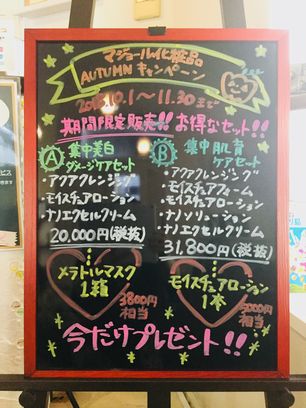 マジョール化粧品
AUTUMNキャンペーン
2018.10.1〜11.30まで
期間限定販売!! お得なセット!!
A 集中美白
ダメージケアセット
・アクアクレンジング
・モイスチュアローション
・ナノエクセルクリーム
20,000円(税抜)
メラトルマスク
1箱
3800円
相当
B 集中肌育
ケアセット
・アクアクレンジング
・モイスチュアフォーム
・モイスチュアローション
・ナノソリューション
・ナノエクセルクリーム
31,800円(税抜)
モイスチュアローション
1本
5000円
相当
今だけプレゼント!!